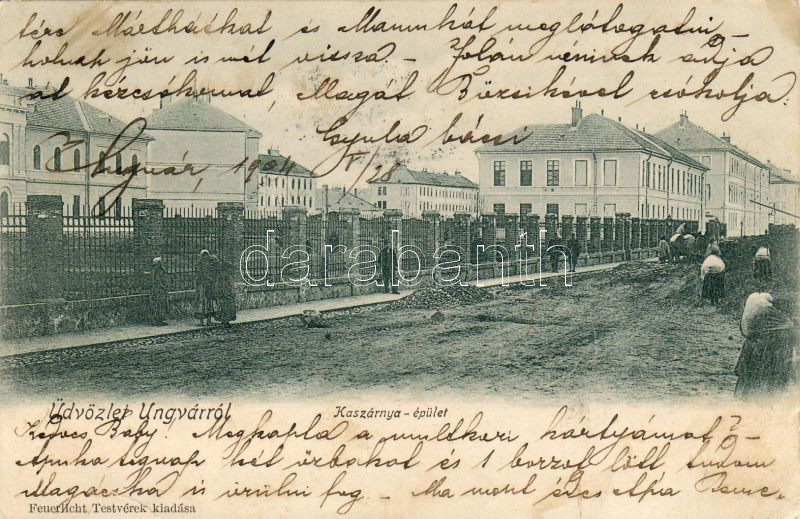 tére Mártháékat és Mamukát meglátogatni -
holnap jön ismét vissza. - Zolán néninek adja
át kézcsókomat, Magát Bözsikével csókolja
Gyula bácsi
Ungvár, 1904 V/28
darabanth
Üdvözlet Ungvárról
Kaszárnya - épület
Kedves Baby! Megkapta a multkori kártyámat? -
Apuka tegnap két őzbakot és 1 borzot lőtt tudom
Magácska is örülni fog - Ma ment édes Apa
Feuerlicht Testvérek kiadása